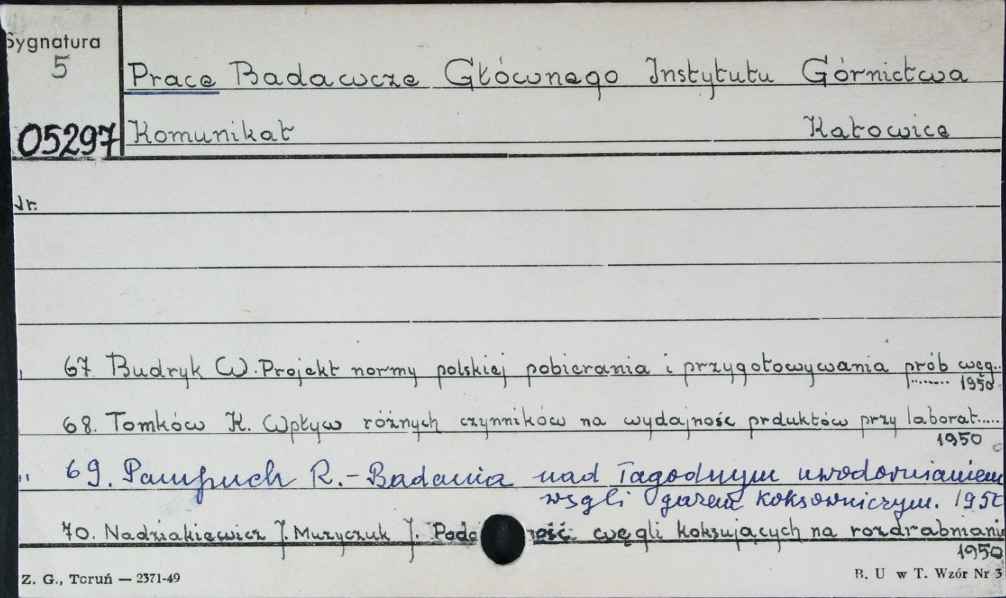 Sygnatura
5
05297
Prace Badawcze Głównego Instytutu Górnictwa
Komunikat Katowice
Nr.
67. Budryk W. Projekt normy polskiej pobierania i przygotowywania prób węg..
1950
68. Tomków K. Wpływ różnych czynników na wydajność prduktów przy laborat.....
1950
" 69. Pampuch R. - Badania nad łagodnym uwodornianiem
węgli gazem koksowniczym. 195
70. Nadziakiewicz J. Muzyczuk J. ość węgli koksujących na rozdrabmani
1950
Z. G., Toruń — 2371-49
B. U w T. Wzór Nr 3